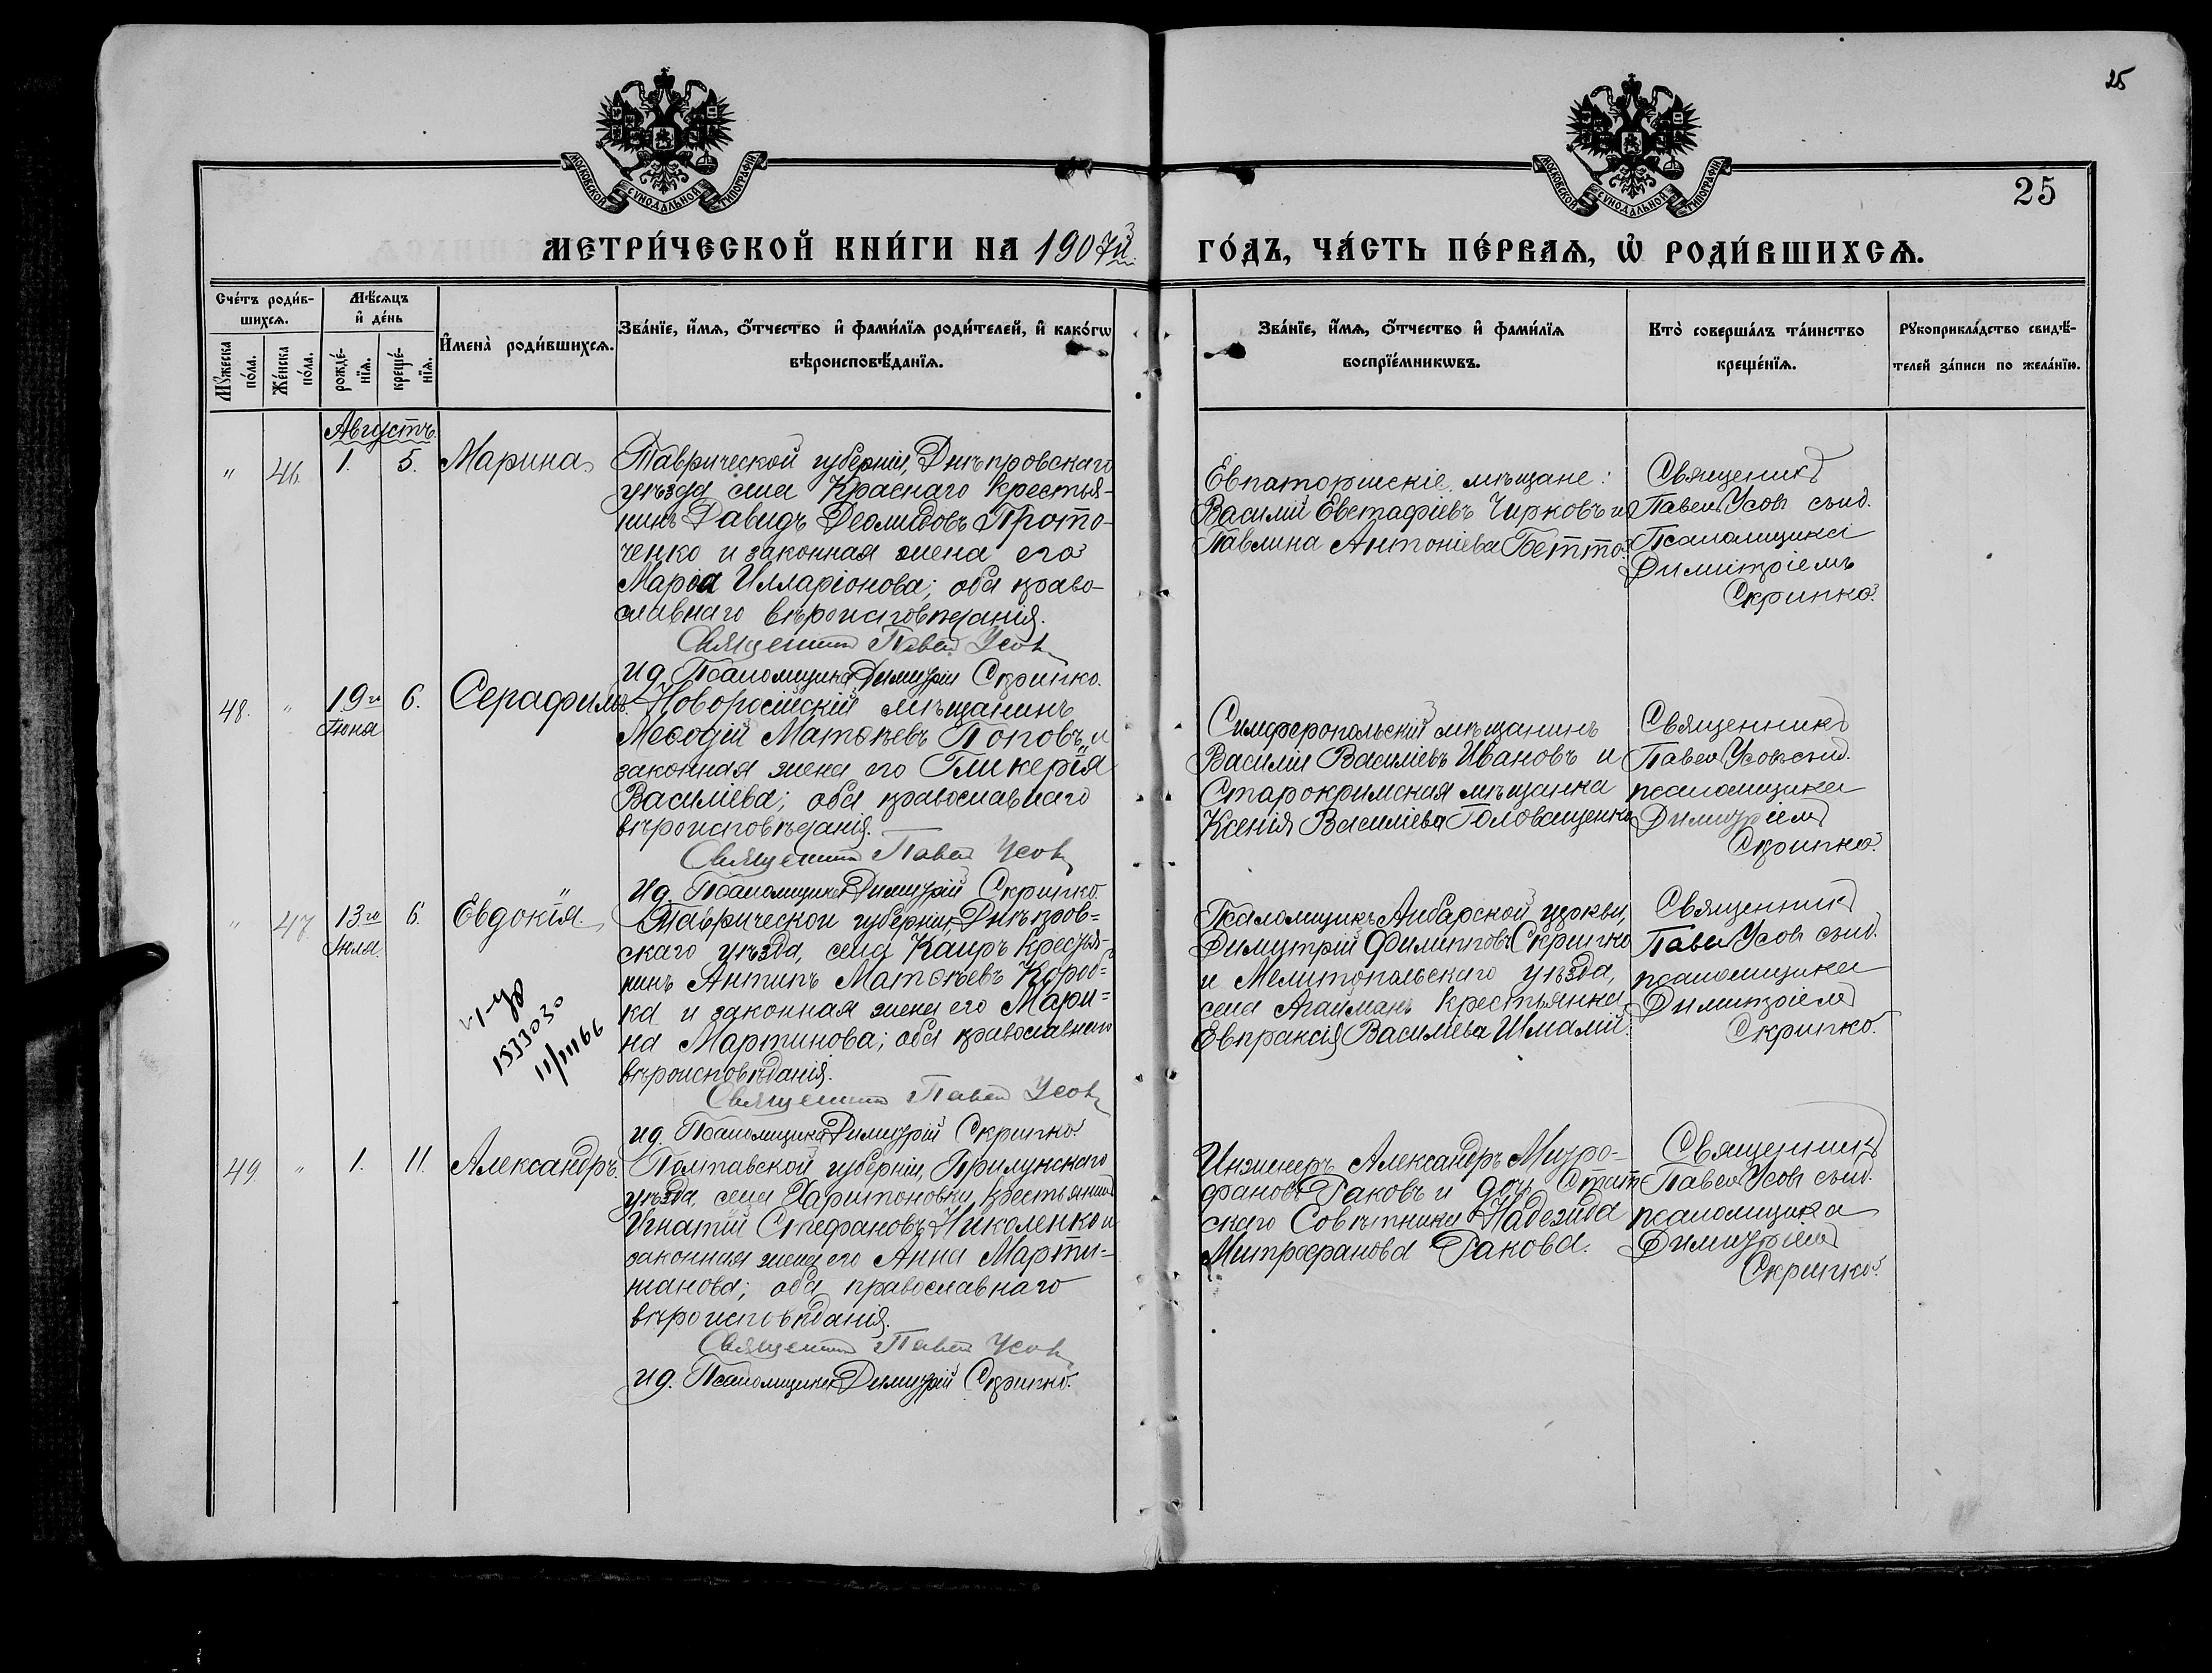 25
МОСКОВСКОЙ СѴНОДАЛЬНОЙ ТИПОГРАФІИ
МОСКОВСКОЙ СѴНОДАЛЬНОЙ ТИПОГРАФІИ
25
МЕТРИ́ЧЕСКОЙ КНИ́ГИ НА 1907й ГО́ДЪ, ЧА́СТЬ ПЕ́РВАѦ, Ѡ҆ РОДИ́ВШИХСѦ.
Сче́тъ роди́в-
шихсѧ.
Мꙋ́жеска по́ла.
Же́нска по́ла.
Мѣ́сѧцъ
и҆ де́нь
рожде́-
нїѧ.
креще́-
нїѧ.
И҆мена̀ роди́вшихсѧ.
Зва́нїе, и҆́мѧ, ѻ҆́тчество и҆ фами́лїѧ роди́телей, и҆ како́гѡ
вѣроисповѣ́данїѧ.
Зва́нїе, и҆́мѧ, ѻ҆́тчество и҆ фами́лїѧ
воспрїе́мникѡвъ.
Кто̀ соверша́лъ та́инство
креще́нїѧ.
Рꙋкоприкла́дство свидѣ́-
телей за́писи по жела́нїю.
Августъ.
" 46. 1. 5. Марина
Таврической губерніи, Днѣпровскаго
уѣзда села Краснаго крестья-
нинъ Давидъ Деомидовъ Прото-
ченко и законная жена его
Марія Илларіонова; оба право-
славнаго вѣроисповѣданія.
Священникъ Павелъ Усовъ
ид. Псаломщика Димитрій Скрипко.
Евпаторійскіе мѣщане:
Василій Евстафіевъ Чирковъ и
Павлина Антоніева Бетто.
Священникъ
Павелъ Усовъ съ ид.
Псаломщика
Димитріемъ
Скрипко.
48. " 19го Іюня 6. Серафимъ.
Новоросійскій мѣщанинъ
Меѳодій Матѳѣевъ Поповъ и
законная жена его Гликерія
Василіева; оба православнаго
вѣроисповѣданія.
Священникъ Павелъ Усовъ
ид. Псаломщика Димитрій Скрипко.
Симферопольскій мѣщанинъ
Василій Василіевъ Ивановъ и
Старокримская мѣщанка
Ксенія Василіева Головащенко
Священникъ
Павелъ Усовъ съ ид.
псаломщика
Димитріемъ
Скрипко.
" 47. 13го Іюля. 6. Евдокія.
153030
11/III 66
Таврической губерніи, Днѣпров=
скаго уѣзда, села Каиръ крестья-
нинъ Антипъ Матѳѣевъ
ка и законная жена его Мари=
на Мартинова; оба православнаго
вѣроисповѣданія.
Священникъ Павелъ Усовъ
ид. Псаломщика Димитрій Скрипко.
Псаломщикъ Анбарской церкви,
Димитрій Филипповъ Скрипко
и Мелитопольскаго уѣзда,
села Агайманъ крестьянка
Евпраксія Василіева Шмалій.
Священникъ
Павелъ Усовъ съ ид.
псаломщика
Димитріемъ
Скрипко.
49. " 1. 11. Александръ.
Полтавской губерніи, Прилукскаго
уѣзда, села Харитоновки, крестьянинъ
Игнатій Стефановъ Николенко и
законная жена его Анна Марти-
нианова; оба православнаго
вѣроисповѣданія.
Священникъ Павелъ Усовъ
ид. Псаломщика Димитрій Скрипко.
Инженеръ Александръ Митро-
фановъ Раковъ и дочь Стат-
скаго Совѣтника Надежда
Митрофанова Ракова.
Священникъ
Павелъ Усовъ съ ид.
псаломщика
Димитріемъ
Скрипко.